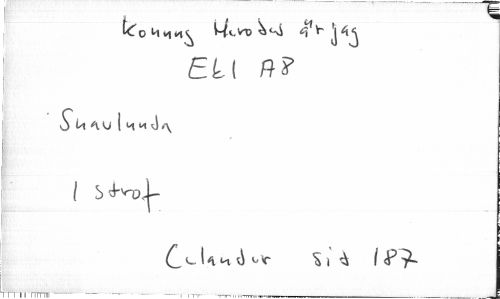 Konung Herodes är jag
Ek1 A8
Snavlunda
1 strof
Celander sid 187